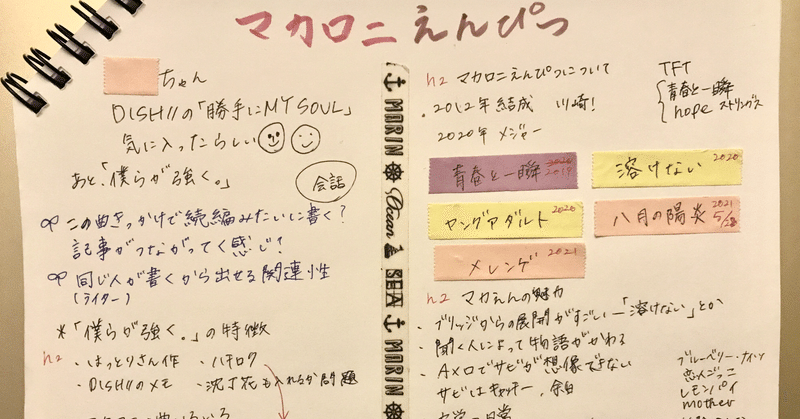 マカロニえんぴつ
ちゃん
DISH//の「勝手にMY SOUL」
気に入ったらしい
あと、「僕らが強く。」
会話
この曲きっかけで続編みたいに書く?
記事がつながってく感じ!
同じ人が書くから出せる関連性
(ライター)
*「僕らが強く。」の特徴
h2
・はっとりさん作 ・ハチロク
・DISH//のメモ ・沈丁花も入れるか問題
MARIN Ocean SEA MARIN
h2 マカロニえんぴつについて
・2012年結成 川崎!
2020年 メジャー
TFT
青春と一瞬
hope ストリングス
青春と一瞬 2019
溶けない 2020
ヤングアダルト 2020
八月の陽炎 2021 5/28
メレンゲ 2021
h2 マカえんの魅力
・ブリッジからの展開がすごい―「溶けない」とか
・聞く人によって物語がかわる
・Aメロでサビが想像できない
サビはキャッチー、余白
ブルーベリー・ナイツ
恋人ごっこ
レモンパイ
mother